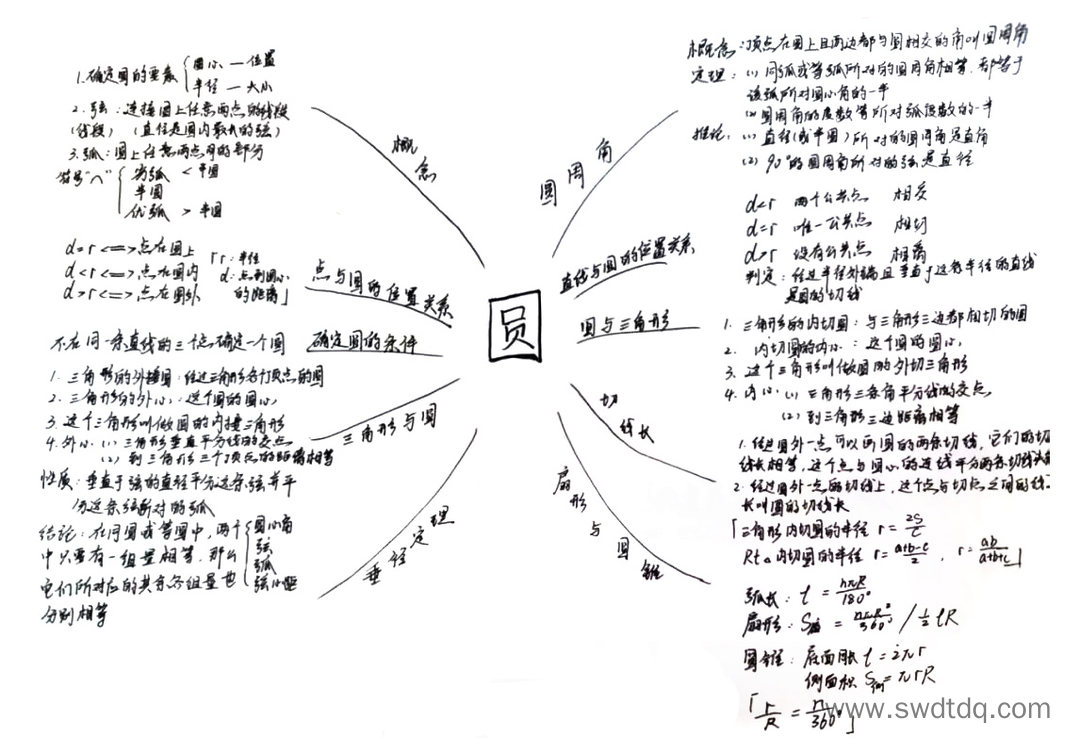 圆
概念
1.确定圆的要素 { 圆心 — 位置
半径 — 大小
2.弦：连接圆上任意两点的线段
(线段) (直径是圆内最长的弦)
3.弧：圆上任意两点间的部分
符号"⌒" { 劣弧 < 半圆
半圆
优弧 > 半圆
点与圆的位置关系
d=r <=> 点在圆上
d<r <=> 点在圆内
d>r <=> 点在圆外
「r：半径
d：点到圆心
的距离」
确定圆的条件
不在同一条直线的三个点确定一个圆
三角形与圆
1. 三角形的外接圆：经过三角形各个顶点的圆
2. 三角形的外心：这个圆的圆心
3. 这个三角形叫做圆的内接三角形
4. 外心：(1) 三角形垂直平分线的交点
(2) 到三角形三个顶点的距离相等
垂径定理
性质：垂直于弦的直径平分这条弦并平
分这条弦所对的弧
结论：在同圆或等圆中，两个 { 圆心角
弦
弧
弦心距
中只要有一组量相等，那么
它们所对应的其余各组量也
分别相等
圆周角
概念：顶点在圆上且两边都与圆相交的角叫圆周角
定理：(1) 同弧或等弧所对的圆周角相等，都等于
该弧所对圆心角的一半
(2) 圆周角的度数等所对弧度数的一半
推论：(1) 直径(或半圆)所对的圆周角是直角
(2) 90°的圆周角所对的弦是直径
直线与圆的位置关系
d<r 两个公共点 相交
d=r 唯一公共点 相切
d>r 没有公共点 相离
判定：经过半径外端且垂直于这条半径的直线
是圆的切线
圆与三角形
1. 三角形的内切圆：与三角形三边都相切的圆
2. 内切圆的内心：这个圆的圆心
3. 这个三角形叫做圆的外切三角形
4. 内心：(1) 三角形三条角平分线的交点
(2) 到三角形三边距离相等
切线长
1. 经过圆外一点可以画圆的两条切线，它们的切
线长相等，这个点与圆心的连线平分两条切线夹角
2. 经过圆外一点的切线上，这个点与切点之间的线
长叫圆的切线长
「三角形内切圆的半径 r = 2S/C
Rt△内切圆的半径 r = (a+b-c)/2 , r = ab/(a+b+c)」
扇形与圆锥
弧长：l = nπR/180°
扇形：S扇 = nπR²/360° / ½lR
圆锥：底面周长 l = 2πr
侧面积 S侧 = πrR
「r/R = n/360°」
www.swdtdq.com